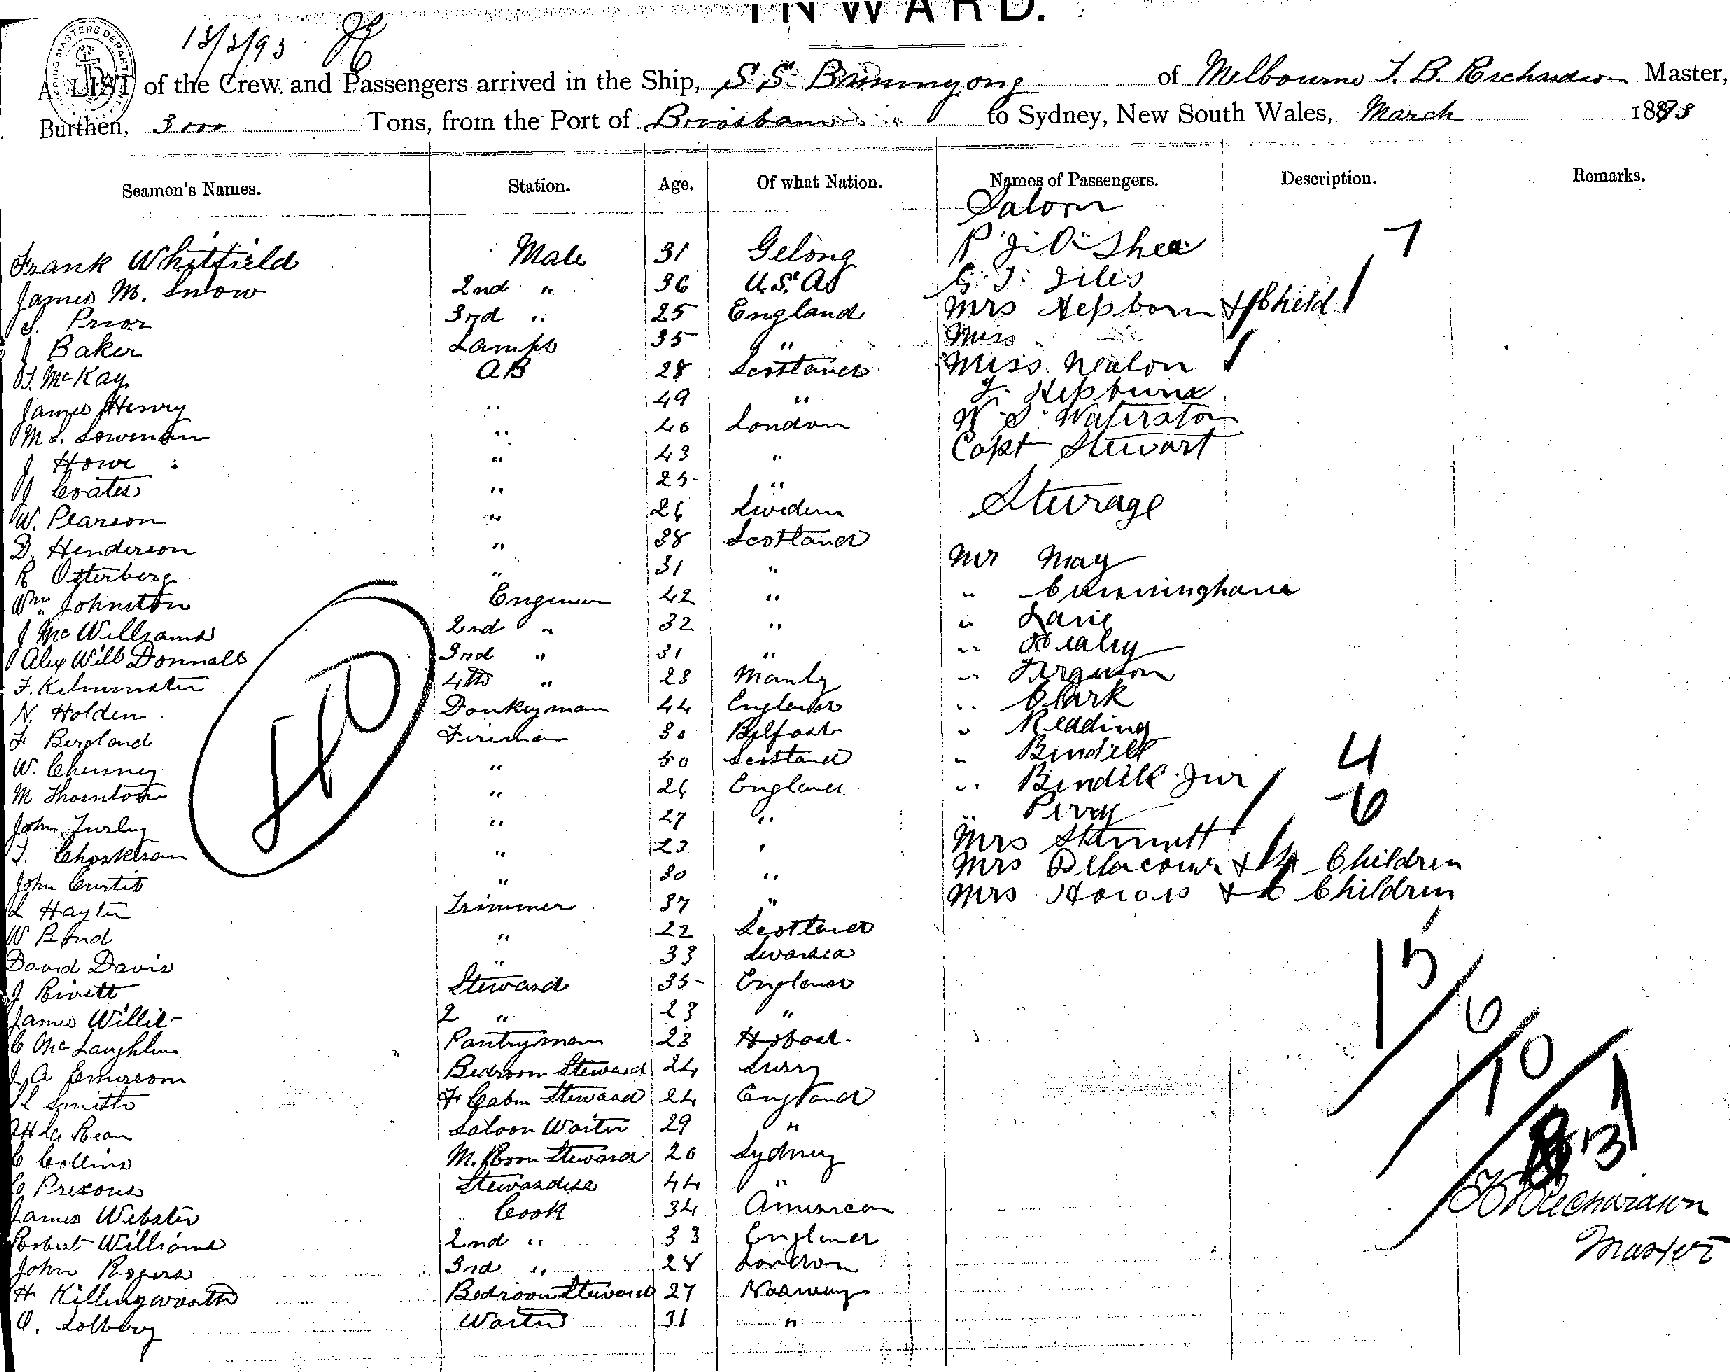 INWARD.
13/3/93
A LIST of the Crew and Passengers arrived in the Ship, S.S. Buninyong of Melbourne T. B. Richardson Master,
Burthen, 3000 Tons, from the Port of Brisbane to Sydney, New South Wales, March 1893
Seamen's Names. Station. Age. Of what Nation. Names of Passengers. Description. Remarks.
Saloon
Frank Whitfield Mate 31 Gelong P. J. O'Shea 7
James M. Snow 2nd " 36 U.S. A. G. T. Giles
J. Prior 3rd " 25 England Mrs Hepborn & Child 1
J Baker Lamps 35 " Miss
J. McKay AB 28 Scotland Miss Nealon
James Henry " 49 " J. Hepburn
M S. Sowman " 40 London W. S. Waterston
J Howe " 43 " Capt Stewart
J Coates " 25 "
W. Pearson " 26 Sweden Steerage
D. Henderson " 38 Scotland
R Osterberg " 31 " Mr May
Wm Johnston Engineer 42 " " Cunninghame
J McWilliams 2nd " 32 " " Lane
Alex Donnall 3rd " 31 " " Healey
F. Kilminster 4th " 23 Manly " Ferguson
N. Holden Donkeyman 44 England " Clark
F Bergland Fireman 30 Belfast " Redding
W. Chenney " 50 Scotland " Bindell 4
M Thornton " 26 England " Bindell Jnr 6
John Turley " 27 " " Perry
" 23 " Mrs Stannett
John Curtis " 30 " Mrs Delacour & 4 Children
L Hayter Trimmer 37 " Mrs & 6 Children
W Bond " 22 Scotland
David Davis " 33 Swansea
J Rivett Steward 35 England
James Willis 2 " 23 "
C McLaughlin Pantryman 23 Hobart
J. A Emerson Bedroom Steward 24 Surry
L Smith F Cabin Steward 24 England
H Le Bean Saloon Waiter 29 "
C Collins M. Room Steward 20 Sydney
Stewardess 44 "
James Webster Cook 34 American
Robert Williams 2nd " 33 England
John Rogers 3rd " 28 London
H Killingworth Bedroom Steward 27 Norway
O. Solberg Waiter 31 "
15
6
10
31
T B Richardson
Master